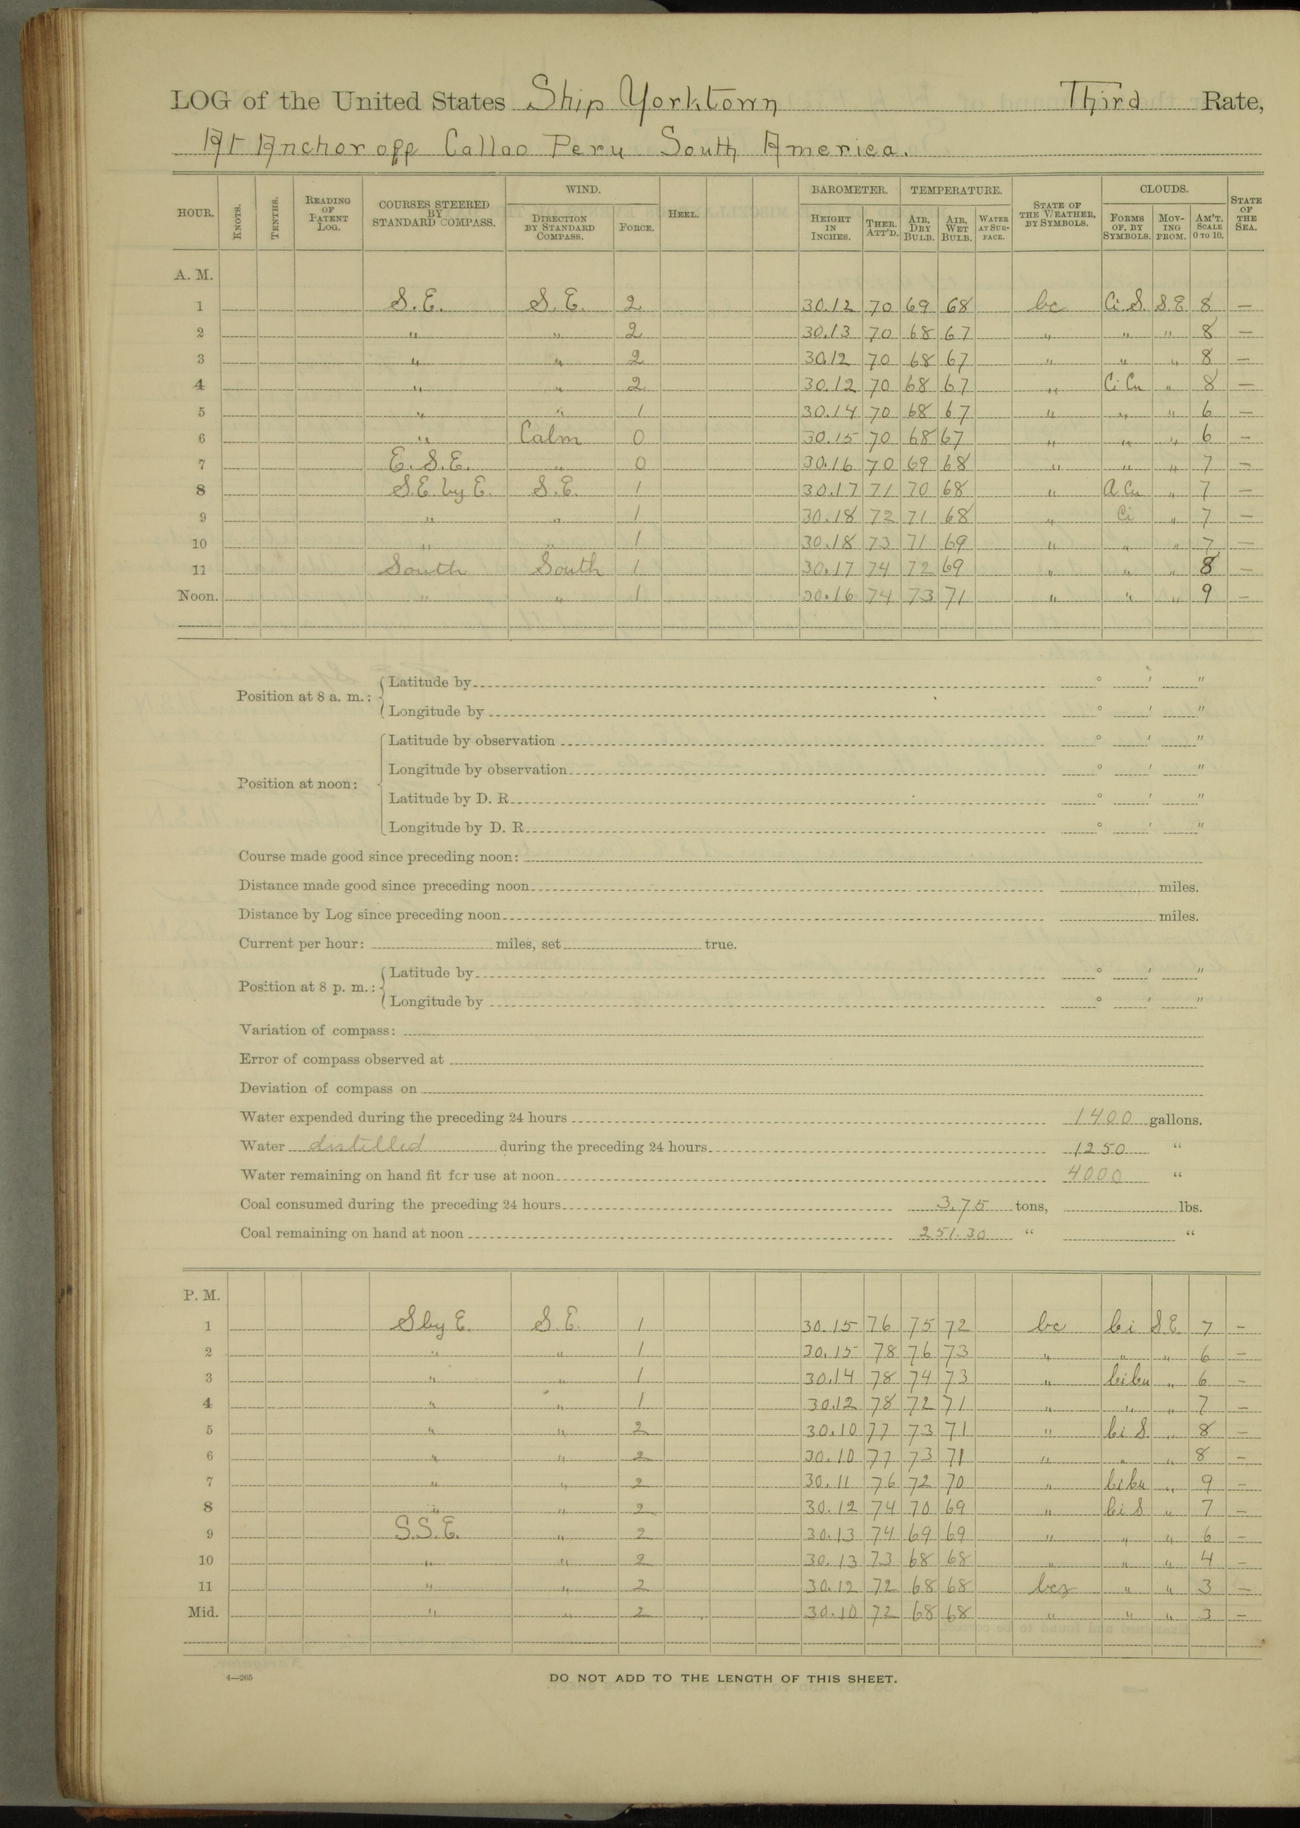 LOG of the United States Ship Yorktown Third Rate,
At Anchor off Callao Peru South America.
HOUR. KNOTS. TENTHS. READING OF PATENT LOG. COURSES STEERED BY STANDARD COMPASS. WIND. DIRECTION BY STANDARD COMPASS. FORCE. HEEL. BAROMETER. HEIGHT IN INCHES. THER. ATT'D. TEMPERATURE. AIR, DRY BULB. AIR, WET BULB. WATER AT SURFACE. STATE OF THE WEATHER, BY SYMBOLS. CLOUDS. FORMS OF, BY SYMBOLS. MOVING FROM. AM'T. SCALE 0 TO 10. STATE OF THE SEA.
A. M.
1 S.E. S.E. 2 30.12 70 69 68 bc Ci.S. S.E. 8 —
2 " " 2 30.13 70 68 67 " " " 8 —
3 " " 2 30.12 70 68 67 " " " 8 —
4 " " 2 30.12 70 68 67 " Ci Cu " 8 —
5 " " 1 30.14 70 68 67 " " " 6 —
6 " Calm 0 30.15 70 68 67 " " " 6 —
7 E.S.E. " 0 30.16 70 69 68 " " " 7 —
8 S.E. by E. S.E. 1 30.17 71 70 68 " A.Cu " 7 —
9 " " 1 30.18 72 71 68 " Ci " 7 —
10 " " 1 30.18 73 71 69 " " " 7 —
11 South South 1 30.17 74 72 69 " " " 8 —
Noon. " " 1 30.16 74 73 71 " " " 9 —
Position at 8 a. m.: Latitude by ° ′ ″
Longitude by ° ′ ″
Position at noon: Latitude by observation ° ′ ″
Longitude by observation ° ′ ″
Latitude by D. R. ° ′ ″
Longitude by D. R. ° ′ ″
Course made good since preceding noon:
Distance made good since preceding noon miles.
Distance by Log since preceding noon miles.
Current per hour: miles, set true.
Position at 8 p. m.: Latitude by ° ′ ″
Longitude by ° ′ ″
Variation of compass:
Error of compass observed at
Deviation of compass on
Water expended during the preceding 24 hours 1400 gallons.
Water distilled during the preceding 24 hours 1250 "
Water remaining on hand fit for use at noon 4000 "
Coal consumed during the preceding 24 hours 3.75 tons, lbs.
Coal remaining on hand at noon 251.30 " "
P. M.
1 S by E. S.E. 1 30.15 76 75 72 bc Ci S.E. 7 —
2 " " 1 30.15 78 76 73 " " " 6 —
3 " " 1 30.14 78 74 73 " Ci Cu " 6 —
4 " " 1 30.12 78 72 71 " " " 7 —
5 " " 2 30.10 77 73 71 " Ci S. " 8 —
6 " " 2 30.10 77 73 71 " " " 8 —
7 " " 2 30.11 76 72 70 " Ci Cu " 9 —
8 " " 2 30.12 74 70 69 " Ci S " 7 —
9 S.S.E. " 2 30.13 74 69 69 " " " 6 —
10 " " 2 30.13 73 68 68 " " " 4 —
11 " " 2 30.12 72 68 68 bcz " " 3 —
Mid. " " 2 30.10 72 68 68 " " " 3 —
4—265 DO NOT ADD TO THE LENGTH OF THIS SHEET.